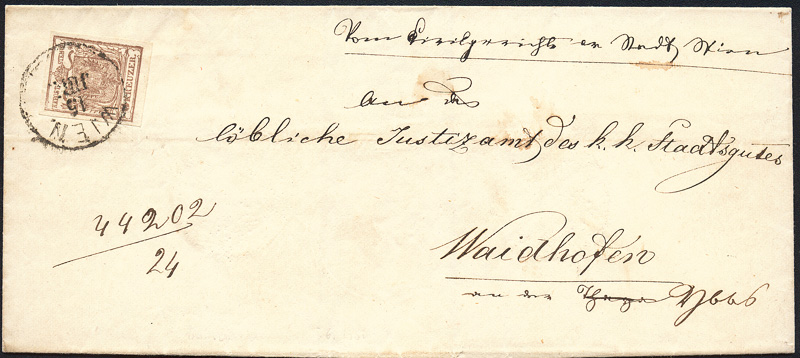 Vom Civilgerichte der Stadt Wien
An das
löbliche Justizamt des k. k. Stadtsgutes
Waidhofen
an der Thaya Ybbs
44202
24
WIEN
15
JUL.
KREUZER